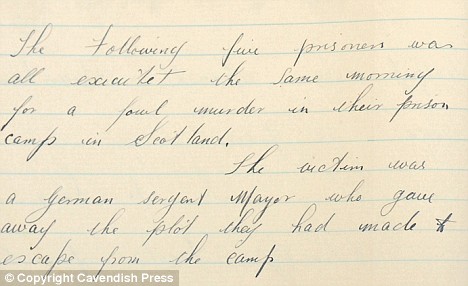 The Following five prisoners was
all executet the same morning
for a fowl murder in their prison
camp in Scotland.
The victim was
a German sergent Mayor who gave
away the plot they had made to
escape from the camp
© Copyright Cavendish Press